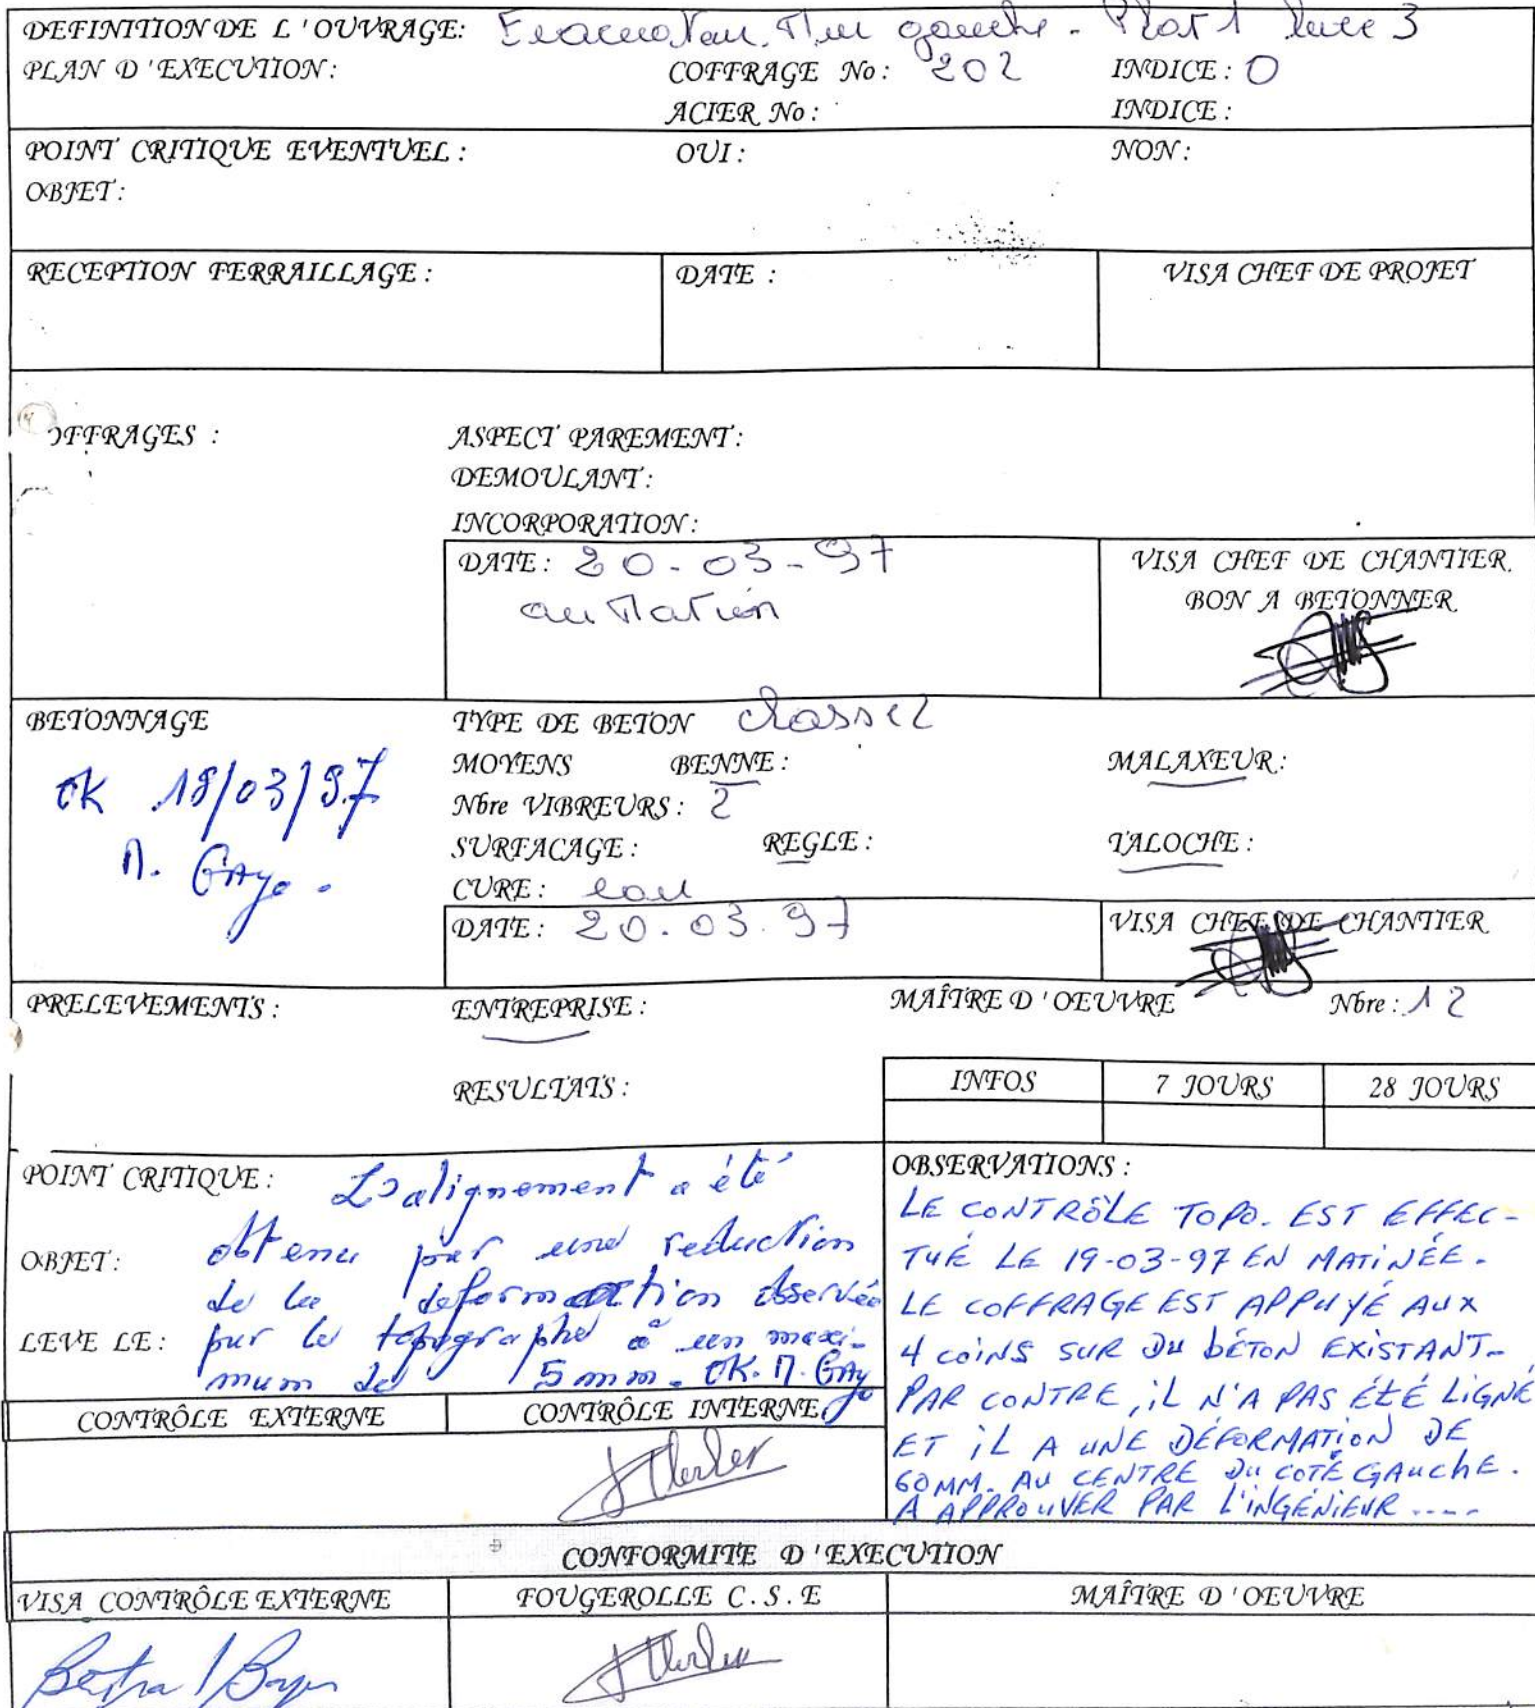 DEFINITION DE L'OUVRAGE: Evacuateur. Mur gauche - Plot 1 levée 3
PLAN D'EXECUTION: COFFRAGE No: 202 INDICE: 0
ACIER No: INDICE:
POINT CRITIQUE EVENTUEL: OUI: NON:
OBJET:
RECEPTION FERRAILLAGE: DATE: VISA CHEF DE PROJET
OFFRAGES: ASPECT PAREMENT:
DEMOULANT:
INCORPORATION:
DATE: 20-03-97 VISA CHEF DE CHANTIER
au Matin BON A BETONNER
BETONNAGE TYPE DE BETON classe 2
OK 18/03/97 MOYENS BENNE: MALAXEUR:
Nbre VIBREURS: 2
M. Gayo. SURFACAGE: REGLE: TALOCHE:
CURE: eau
DATE: 20.03.97 VISA CHEF DE CHANTIER
PRELEVEMENTS: ENTREPRISE: MAÎTRE D'OEUVRE Nbre: 12
RESULTATS: INFOS 7 JOURS 28 JOURS
POINT CRITIQUE: L'alignement a été
OBJET: obtenu par une reduction
de la deformation observée
LEVE LE: par le topographe à un maxi-
mum de 5 mm. OK. M. Gayo
OBSERVATIONS:
LE CONTRÔLE TOPO. EST EFFEC-
TUÉ LE 19-03-97 EN MATINÉE.
LE COFFRAGE EST APPUYÉ AUX
4 COINS SUR DU BÉTON EXISTANT-
PAR CONTRE, IL N'A PAS ÉTÉ LIGNÉ
ET IL A UNE DÉFORMATION DE
60MM. AU CENTRE DU COTÉ GAUCHE.
A APPROUVER PAR L'INGÉNIEUR ....
CONTRÔLE EXTERNE CONTRÔLE INTERNE
CONFORMITE D'EXECUTION
VISA CONTRÔLE EXTERNE FOUGEROLLE C.S.E MAÎTRE D'OEUVRE